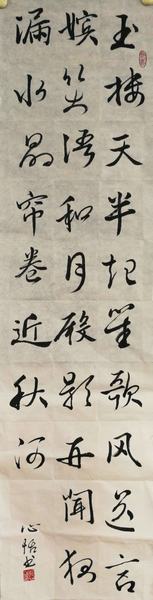 玉楼天半起笙歌风送宫
嫔笑语和月殿影开闻夜
漏水晶帘卷近秋河
心悟书